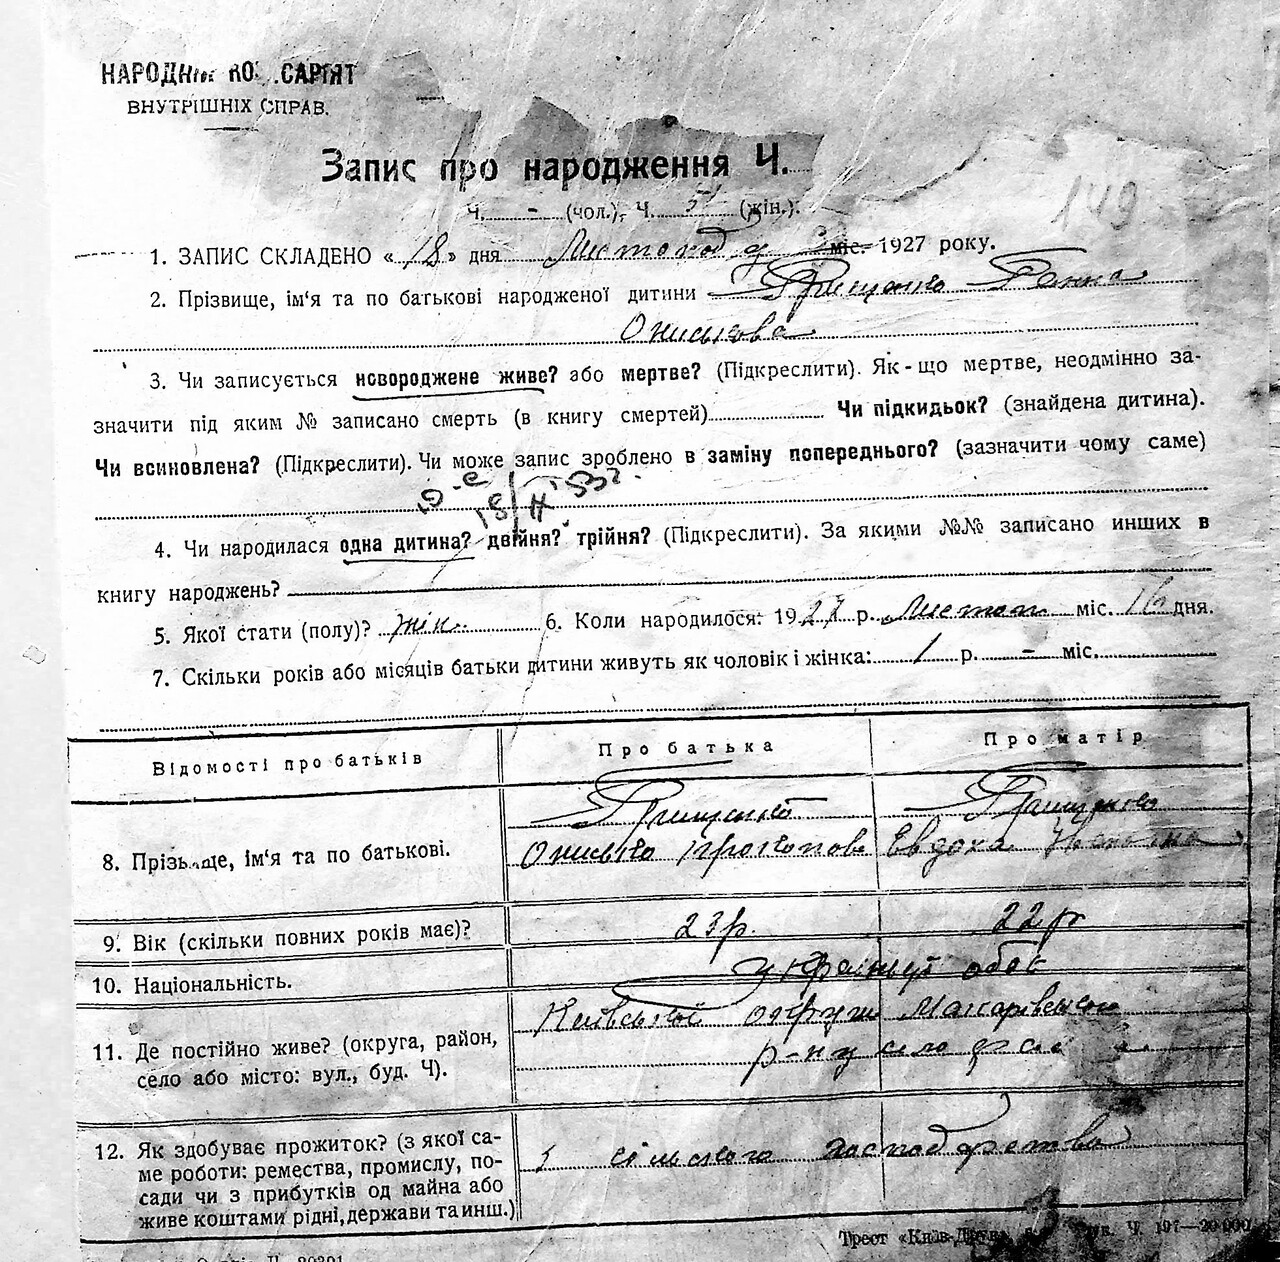 НАРОДНИЙ КОМІСАРІЯТ
ВНУТРІШНІХ СПРАВ.
Запис про народження Ч.
Ч. - (чол.), Ч. 51 (жін.).
149
1. ЗАПИС СКЛАДЕНО « 18 » дня Листопаду міс. 1927 року.
2. Прізвище, ім'я та по батькові народженої дитини Грищенко Ганна
Ониськова
3. Чи записується новороджене живе? або мертве? (Підкреслити). Як-що мертве, неодмінно за-
значити під яким № записано смерть (в книгу смертей) Чи підкидьок? (знайдена дитина).
Чи всиновлена? (Підкреслити). Чи може запис зроблено в заміну попереднього? (зазначити чому саме)
4. Чи народилася одна дитина? двійня? трійня? (Підкреслити). За якими №№ записано инших в
книгу народжень?
5. Якої стати (полу)? жін. 6. Коли народилося: 1927 р. Листоп міс. 16 дня.
7. Скільки років або місяців батьки дитини живуть як чоловік і жінка: 1 р. - міс.
Відомості про батьків
Про батька
Про матір
8. Прізвище, ім'я та по батькові.
Грищенко
Онисько Прокопов
Грищенко
Евдоха
9. Вік (скільки повних років має)?
23 р.
22 р
10. Національність.
Українці обоє
11. Де постійно живе? (округа, район,
село або місто: вул., буд. Ч).
Київської округи Макарівського
р-ну село
12. Як здобуває прожиток? (з якої са-
ме роботи: ремества, промислу, по-
сади чи з прибутків од майна або
живе коштами рідні, держави та инш.)
з сільского господарства
Трест «Київ-Друк»